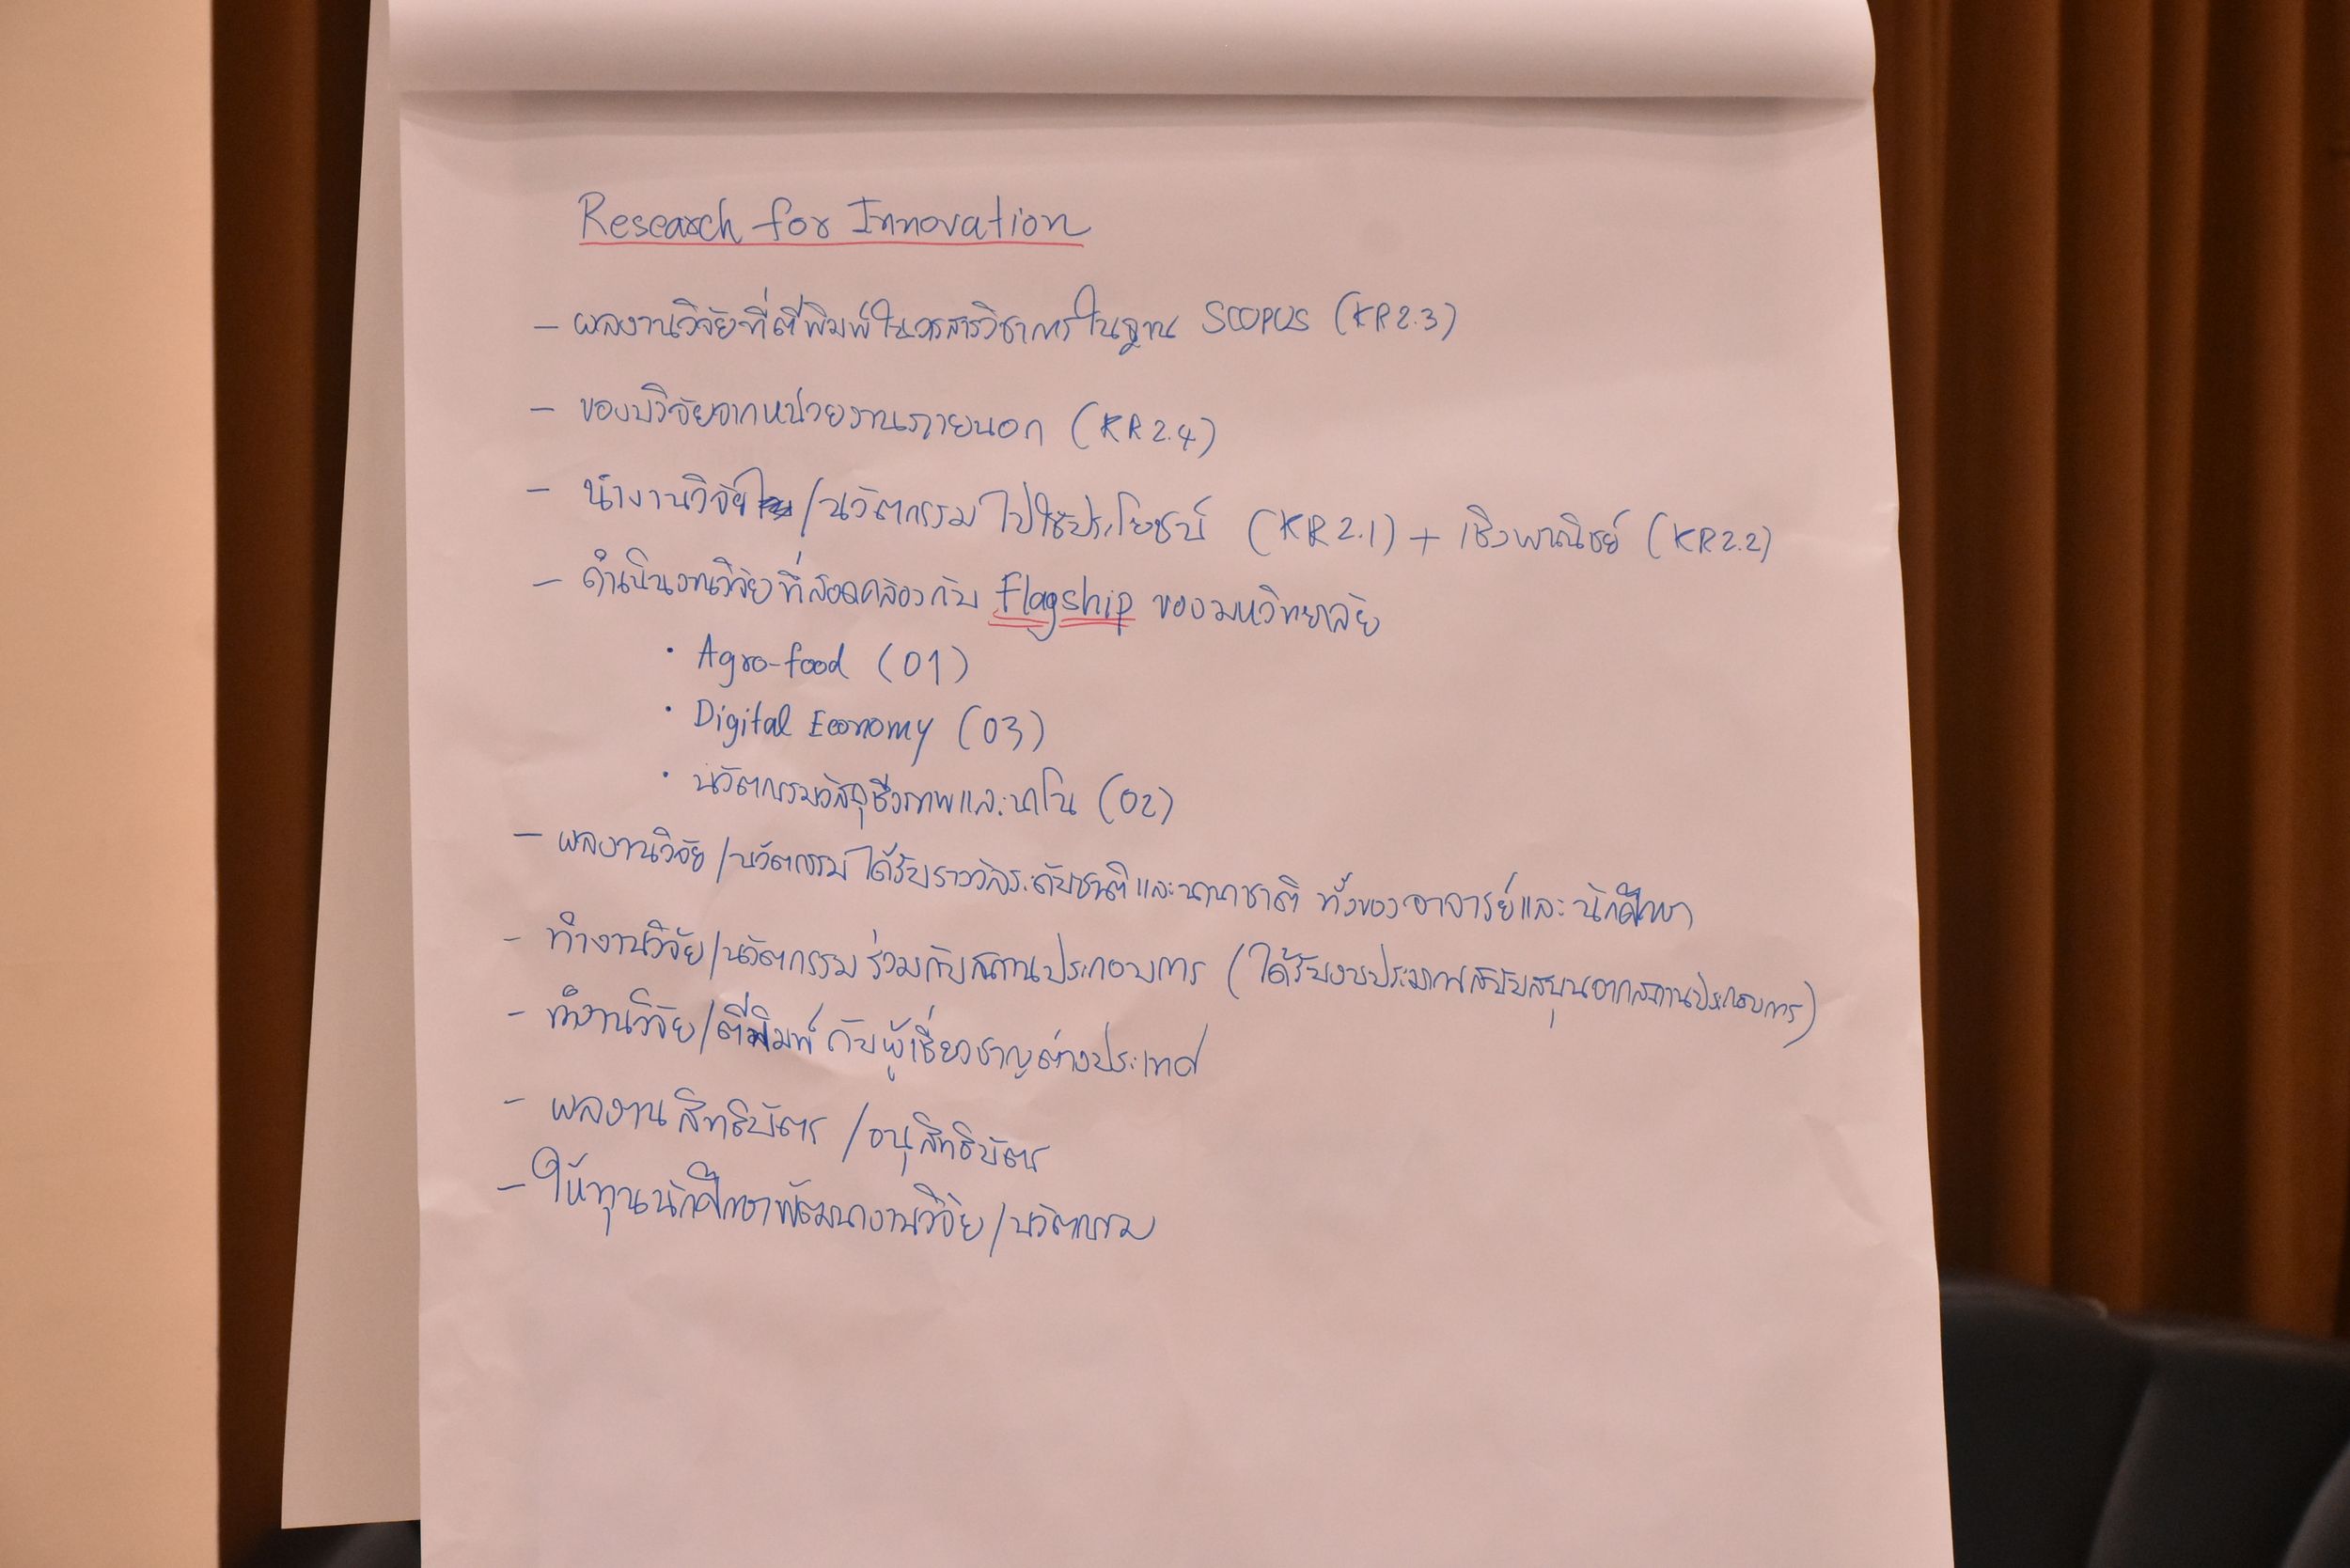 Research for Innovation
- ผลงานวิจัยที่ตีพิมพ์ในวารสารวิชาการในฐาน SCOPUS (KR2.3)
- ของบวิจัยจากหน่วยงานภายนอก (KR2.4)
- นำงานวิจัย/นวัตกรรมไปใช้ประโยชน์ (KR2.1) + เชิงพาณิชย์ (KR2.2)
- ดำเนินงานวิจัยที่สอดคล้องกับ Flagship ของมหาวิทยาลัย
• Agro-food (01)
• Digital Economy (03)
• นวัตกรรมวัสดุชีวภาพและนาโน (02)
- ผลงานวิจัย/นวัตกรรม ได้รับรางวัลระดับชาติและนานาชาติ ทั้งของอาจารย์และนักศึกษา
- ทำงานวิจัย/นวัตกรรม ร่วมกับสถานประกอบการ (ได้รับงบประมาณสนับสนุนจากสถานประกอบการ)
- ทำงานวิจัย/ตีพิมพ์ กับผู้เชี่ยวชาญต่างประเทศ
- ผลงานสิทธิบัตร /อนุสิทธิบัตร
- ให้ทุนนักศึกษาพัฒนางานวิจัย/นวัตกรรม